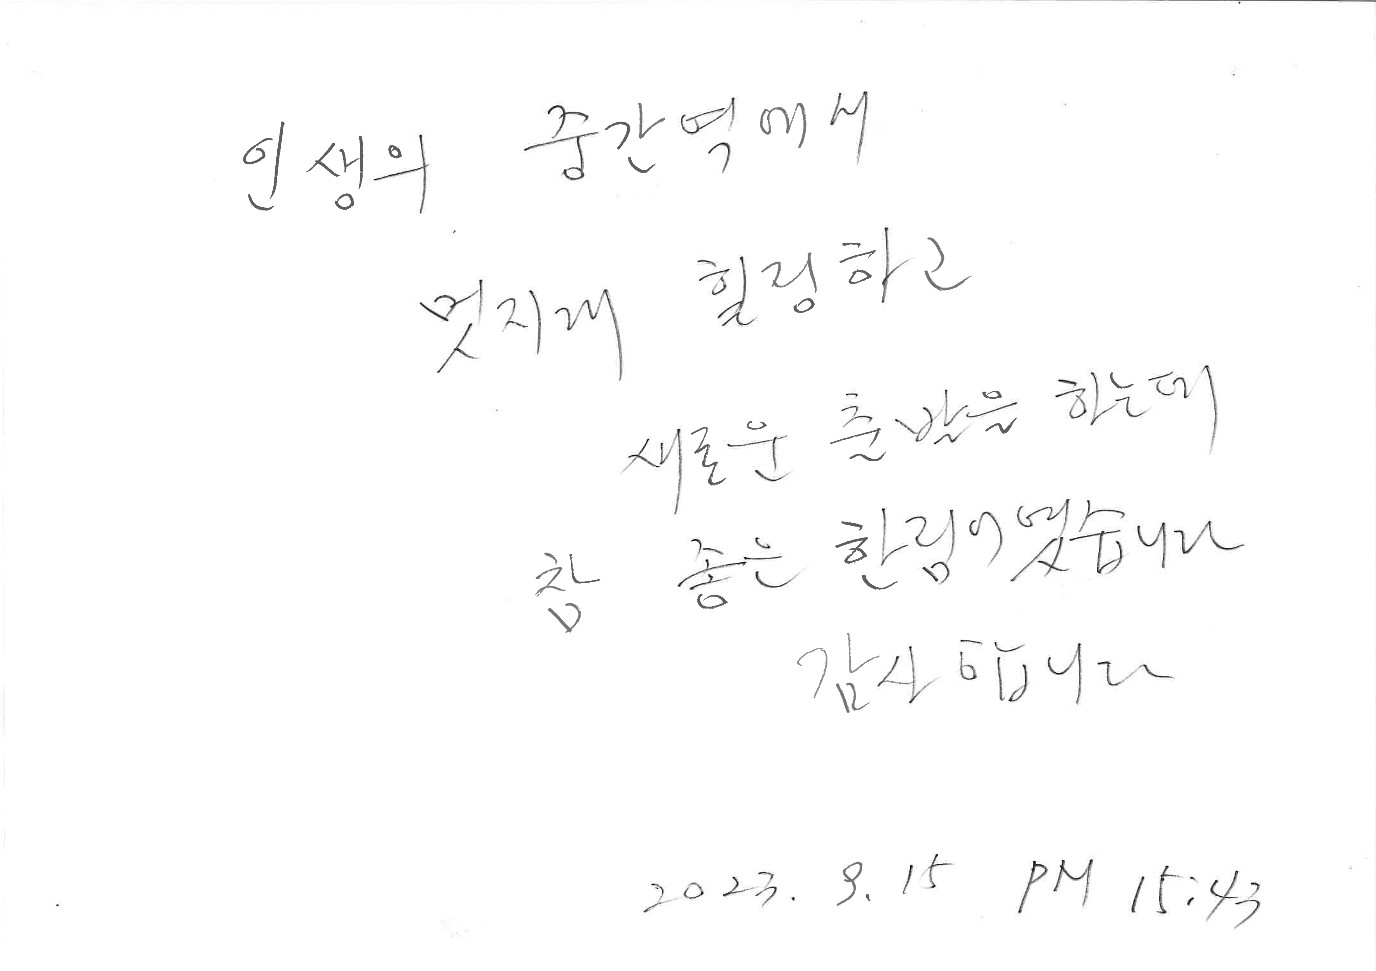 인생의 중간역에서
멋지게 힐링하고
새로운 출발을 하는데
참 좋은 한림이였습니다
감사합니다
2023. 9. 15 PM 15:43